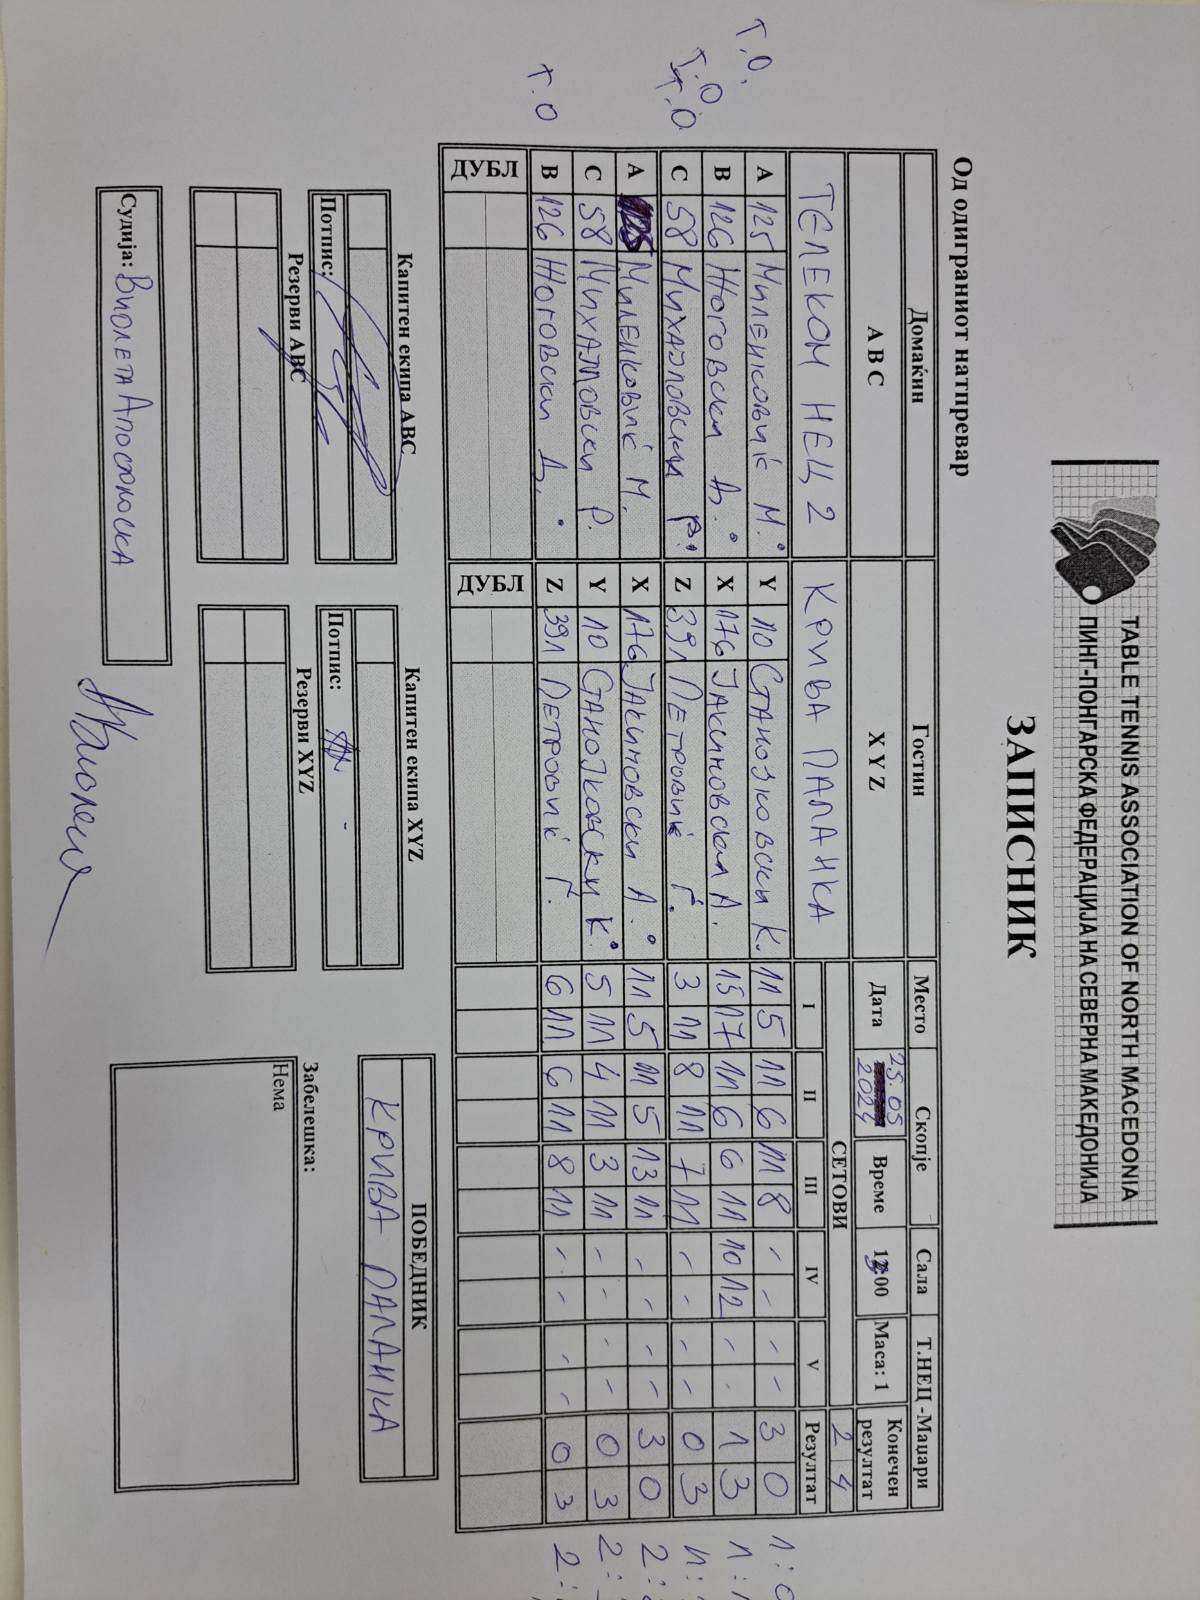 TABLE TENNIS ASSOCIATION OF NORTH MACEDONIA
ПИНГ-ПОНГАРСКА ФЕДЕРАЦИЈА НА СЕВЕРНА МАКЕДОНИЈА
ЗАПИСНИК
Од одиграниот натпревар
Домаќин Гостин Место Скопје Сала Т.НЕЦ -Маџари
A B C X Y Z Дата 25.05 2024 Време 13:00 Маса: 1 Конечен резултат
ТЕЛЕКОМ НЕЦ 2 КРИВА ПАЛАНКА СЕТОВИ 2 4
I II III IV V Резултат
Т.О. A 125 МИЛЕНКОВИЌ М. Y 10 СТАНОЈКОВСКИ К. 11 5 11 6 11 8 - - - - 3 0 1:0
Т.О B 126 ЖОГОВСКИ Д. X 176 ЈАКИМОВСКИ А. 15 17 11 6 6 11 10 12 - - 1 3 1:1
Т.О C 58 МИХАЈЛОВСКИ Р. Z 391 ПЕТРОВИЌ Г. 3 11 8 11 7 11 - - - - 0 3
A 125 МИЛЕНКОВИЌ М. X 176 ЈАКИМОВСКИ А. 11 5 11 5 13 11 - - - - 3 0 2:
C 58 МИХАЈЛОВСКИ Р. Y 10 СТАНОЈКОВСКИ К. 5 11 4 11 3 11 - - - - 0 3 2:
Т.О B 126 ЖОГОВСКИ Д. Z 391 ПЕТРОВИЌ Г. 6 11 6 11 8 11 - - - - 0 3 2:
ДУБЛ ДУБЛ
Капитен екипа ABC Капитен екипа XYZ ПОБЕДНИК
КРИВА ПАЛАНКА
Потпис: Потпис:
Резерви ABC Резерви XYZ Забелешка:
Нема
Судија: ВИОЛЕТА АПОСТОЛОСКА